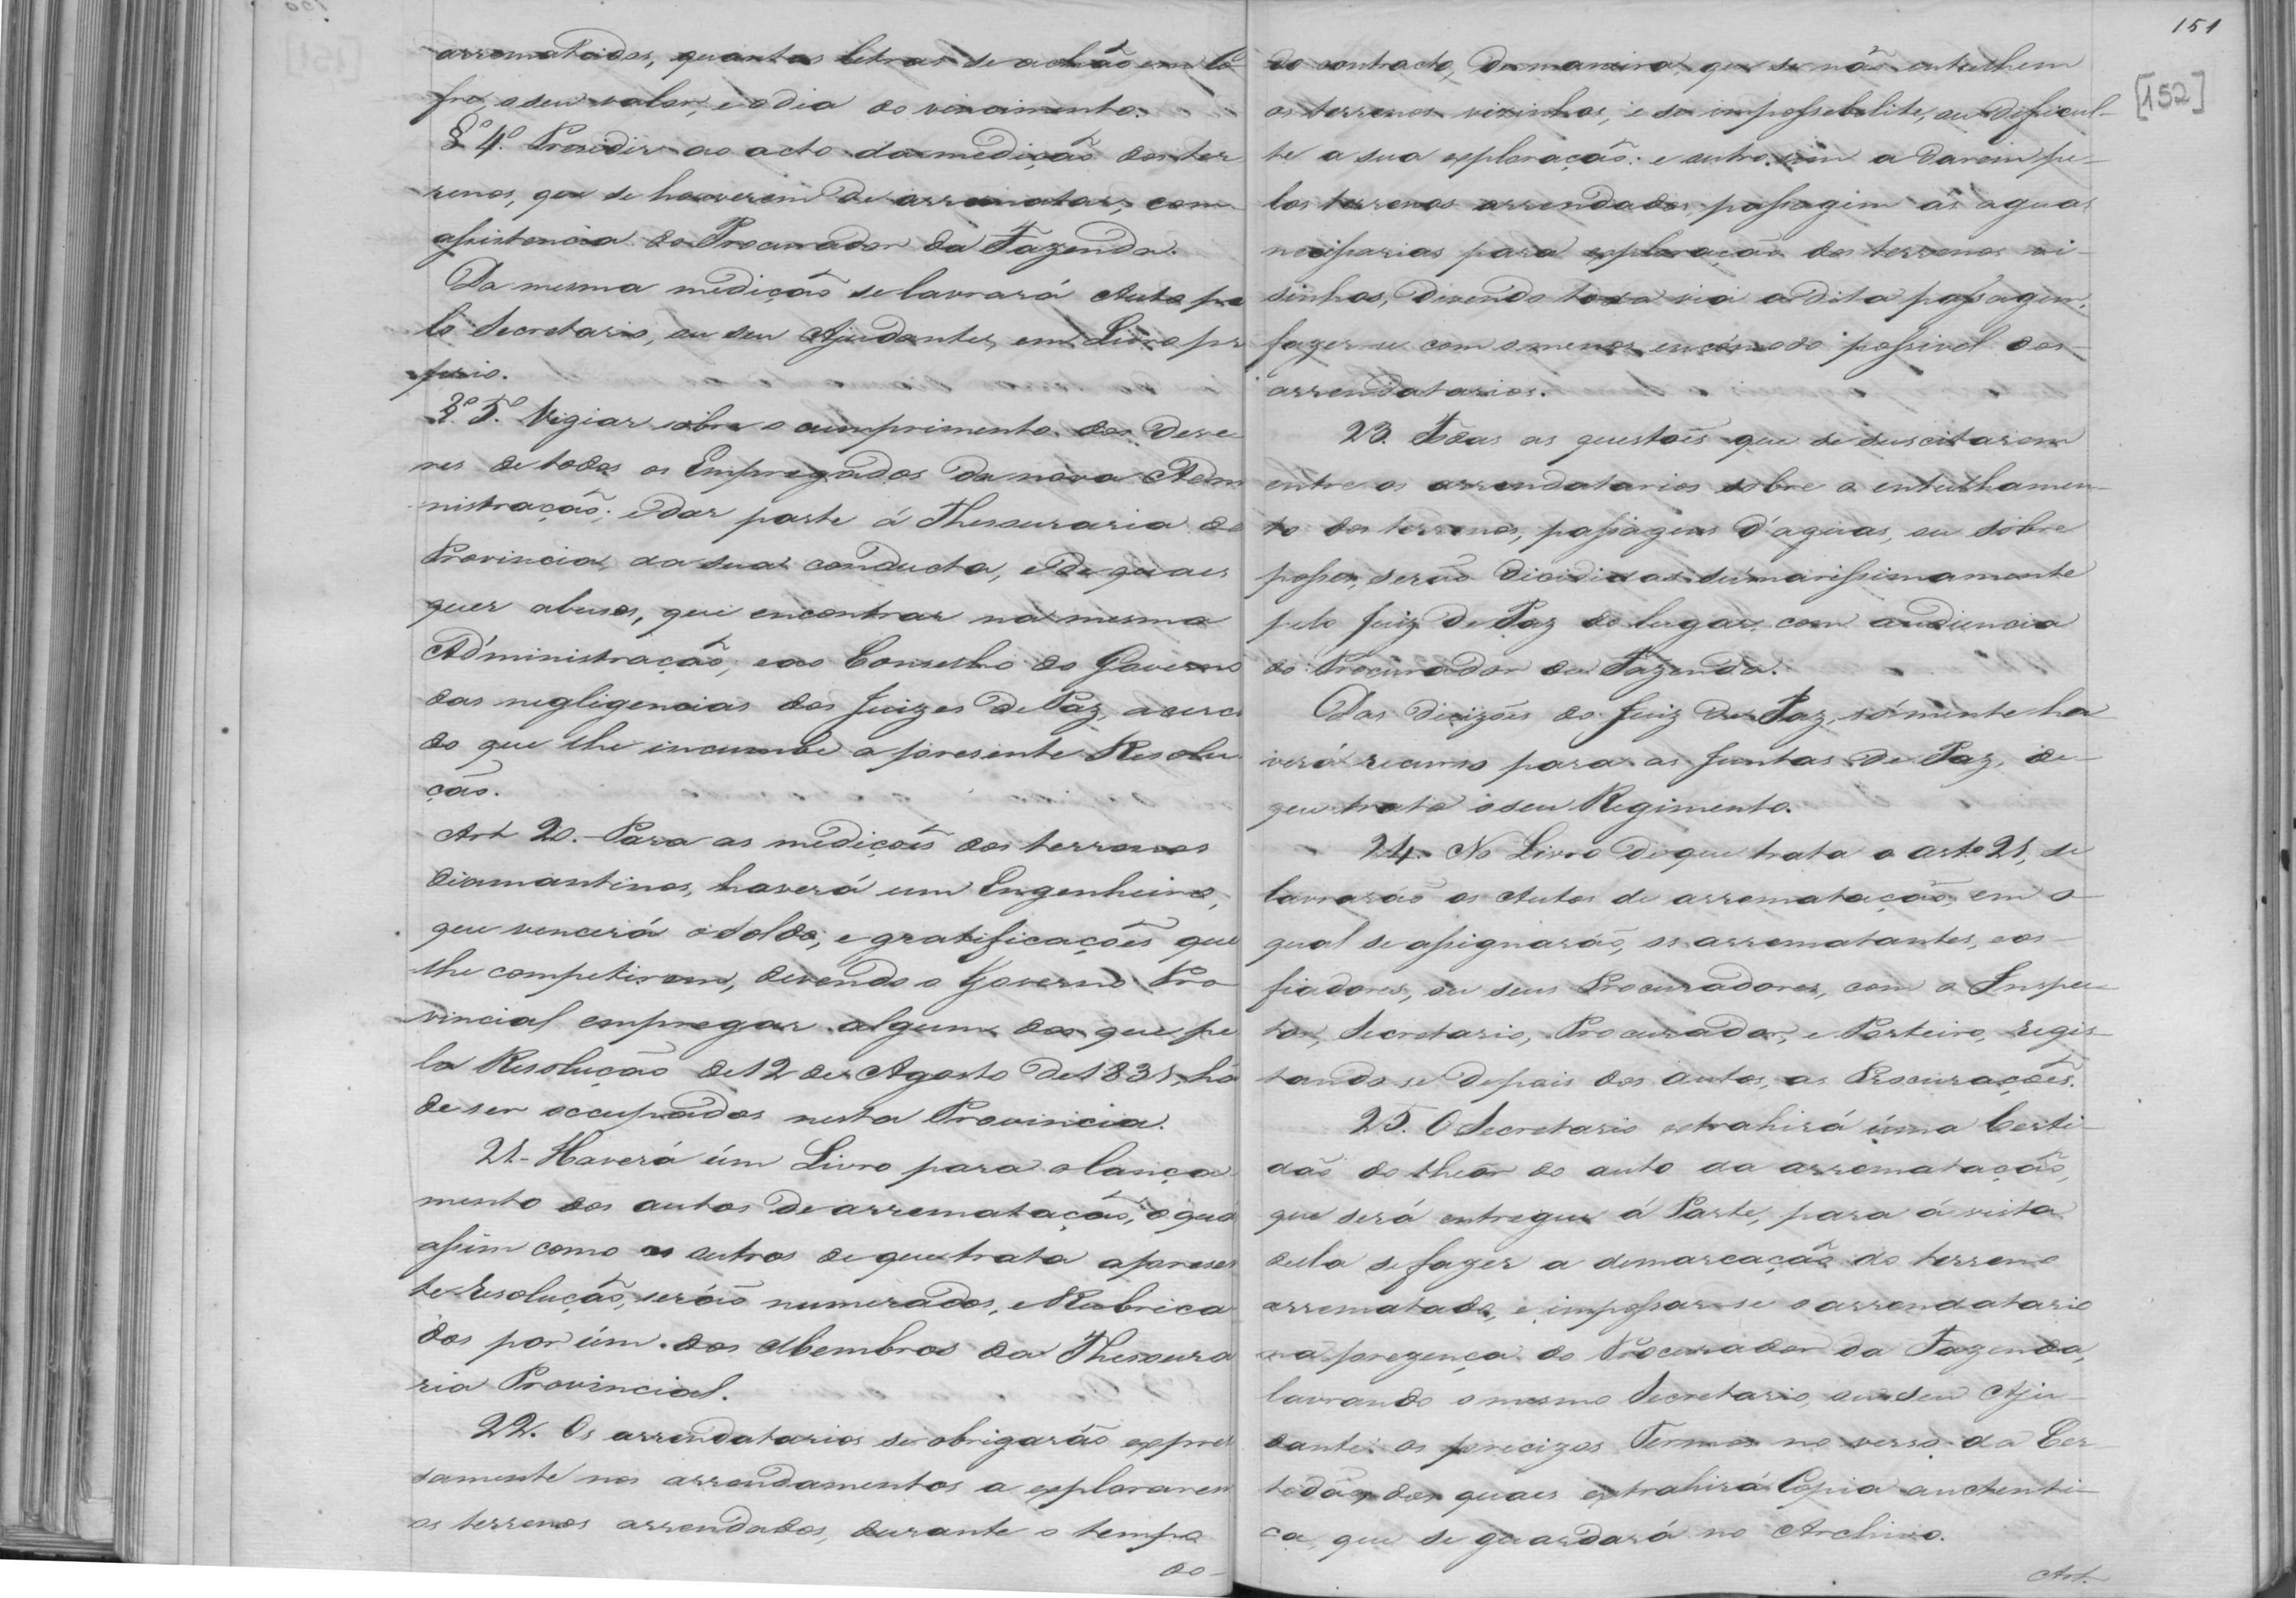 arrematados, quantas letras se achão em co
fre, o seu valor, e o dia do vencimento.
§º 4º. Presidir ao acto da medição dos ter
renos, que se houverem de arrematar, com
assistencia do Procurador da Fazenda.
Da mesma medição se lavrará Auto pe
lo Secretario, ou seu Ajudante, em Livro pr
prio.
§º 5º. Vigiar sobre o cumprimento dos Deve
res de todos os Empregados da nova Adm
nistração; e dar parte á Thesouraria da
Provincia da sua conducta, e de quaes
quer abusos, que encontrar na mesma
Administração; e ao Conselho do Governo
das negligencias dos Juizes de Paz, acerca
do que lhe incumbe a presente Resolu
ção.
Art 20. Para as medições dos terrenos
diamantinos, haverá um Engenheiro,
que vencerá o soldo, e gratificações que
lhe competirem, devendo o Governo Pro
vincial empregar algum dos que pe
la Resolução de 12 de Agosto de 1831, hão
de ser occupados nesta Provincia.
21. Haverá úm Livro para o lança
mento dos autos de arrematação, o qua
assim como os outros de que trata a presen
te Resolução, serão numerados, e Rubrica
dos por úm dos Membros da Thesoura
ria Provincial.
22. Os arrendatarios se obrigarão expres
samente nos arrendamentos a explorarem
os terrenos arrendados, durante o tempo
do
151
[152]
do contracto, de maneira, que se não entulhem
os terrenos vizinhos, e se impossebelite, ou deficul-
te a sua exploração: e outro sim a darem pe-
los terrenos arrendados, passagem ás aguas
necessarias para exploração dos terrenos vi-
sinhos, devendo toda via a dita passagem,
fazer-se com o menor encómodo possivel dos
arrendatarios.
23. Todas as questões que se suscitarem
entre os arrendatarios sobre o entulhamen
to dos terrenos, passagens d'aguas, ou sobre
posse, serão dicididas summarissimamente
pelo Juiz de Paz do lugar, com audiencia
do Procurador da Fazenda.
Das dicizões do Juiz de Paz, sómente ha
verá recurso para as Juntas de Paz, de
que trata o seu Regimento.
24. No Livro de que trata o arto 21, se
lavrarão os Autos de arrematação, em o
qual se assignarão, os arrematantes, e os
fiadores, ou seus Procuradores, com o Inspe
tor, Secretario, Procurador, e Porteiro, regis
tando se depois dos autos, as Procurações.
25. O Secretario extrahirá úma Certi-
dão do theor do auto da arrematação,
que será entregue á Parte, para á vista
della se fazer a demarcação do terreno
arrematado, e impossar-se o arrendatario
na prezença do Procurador da Fazenda,
lavrando o mesmo Secretario, ou seu Aju-
dante os precizos Termos no verso da Cer-
tidão, dos quaes extrahirá Copia auctenti-
ca, que se guardará no Archivo.
Art.